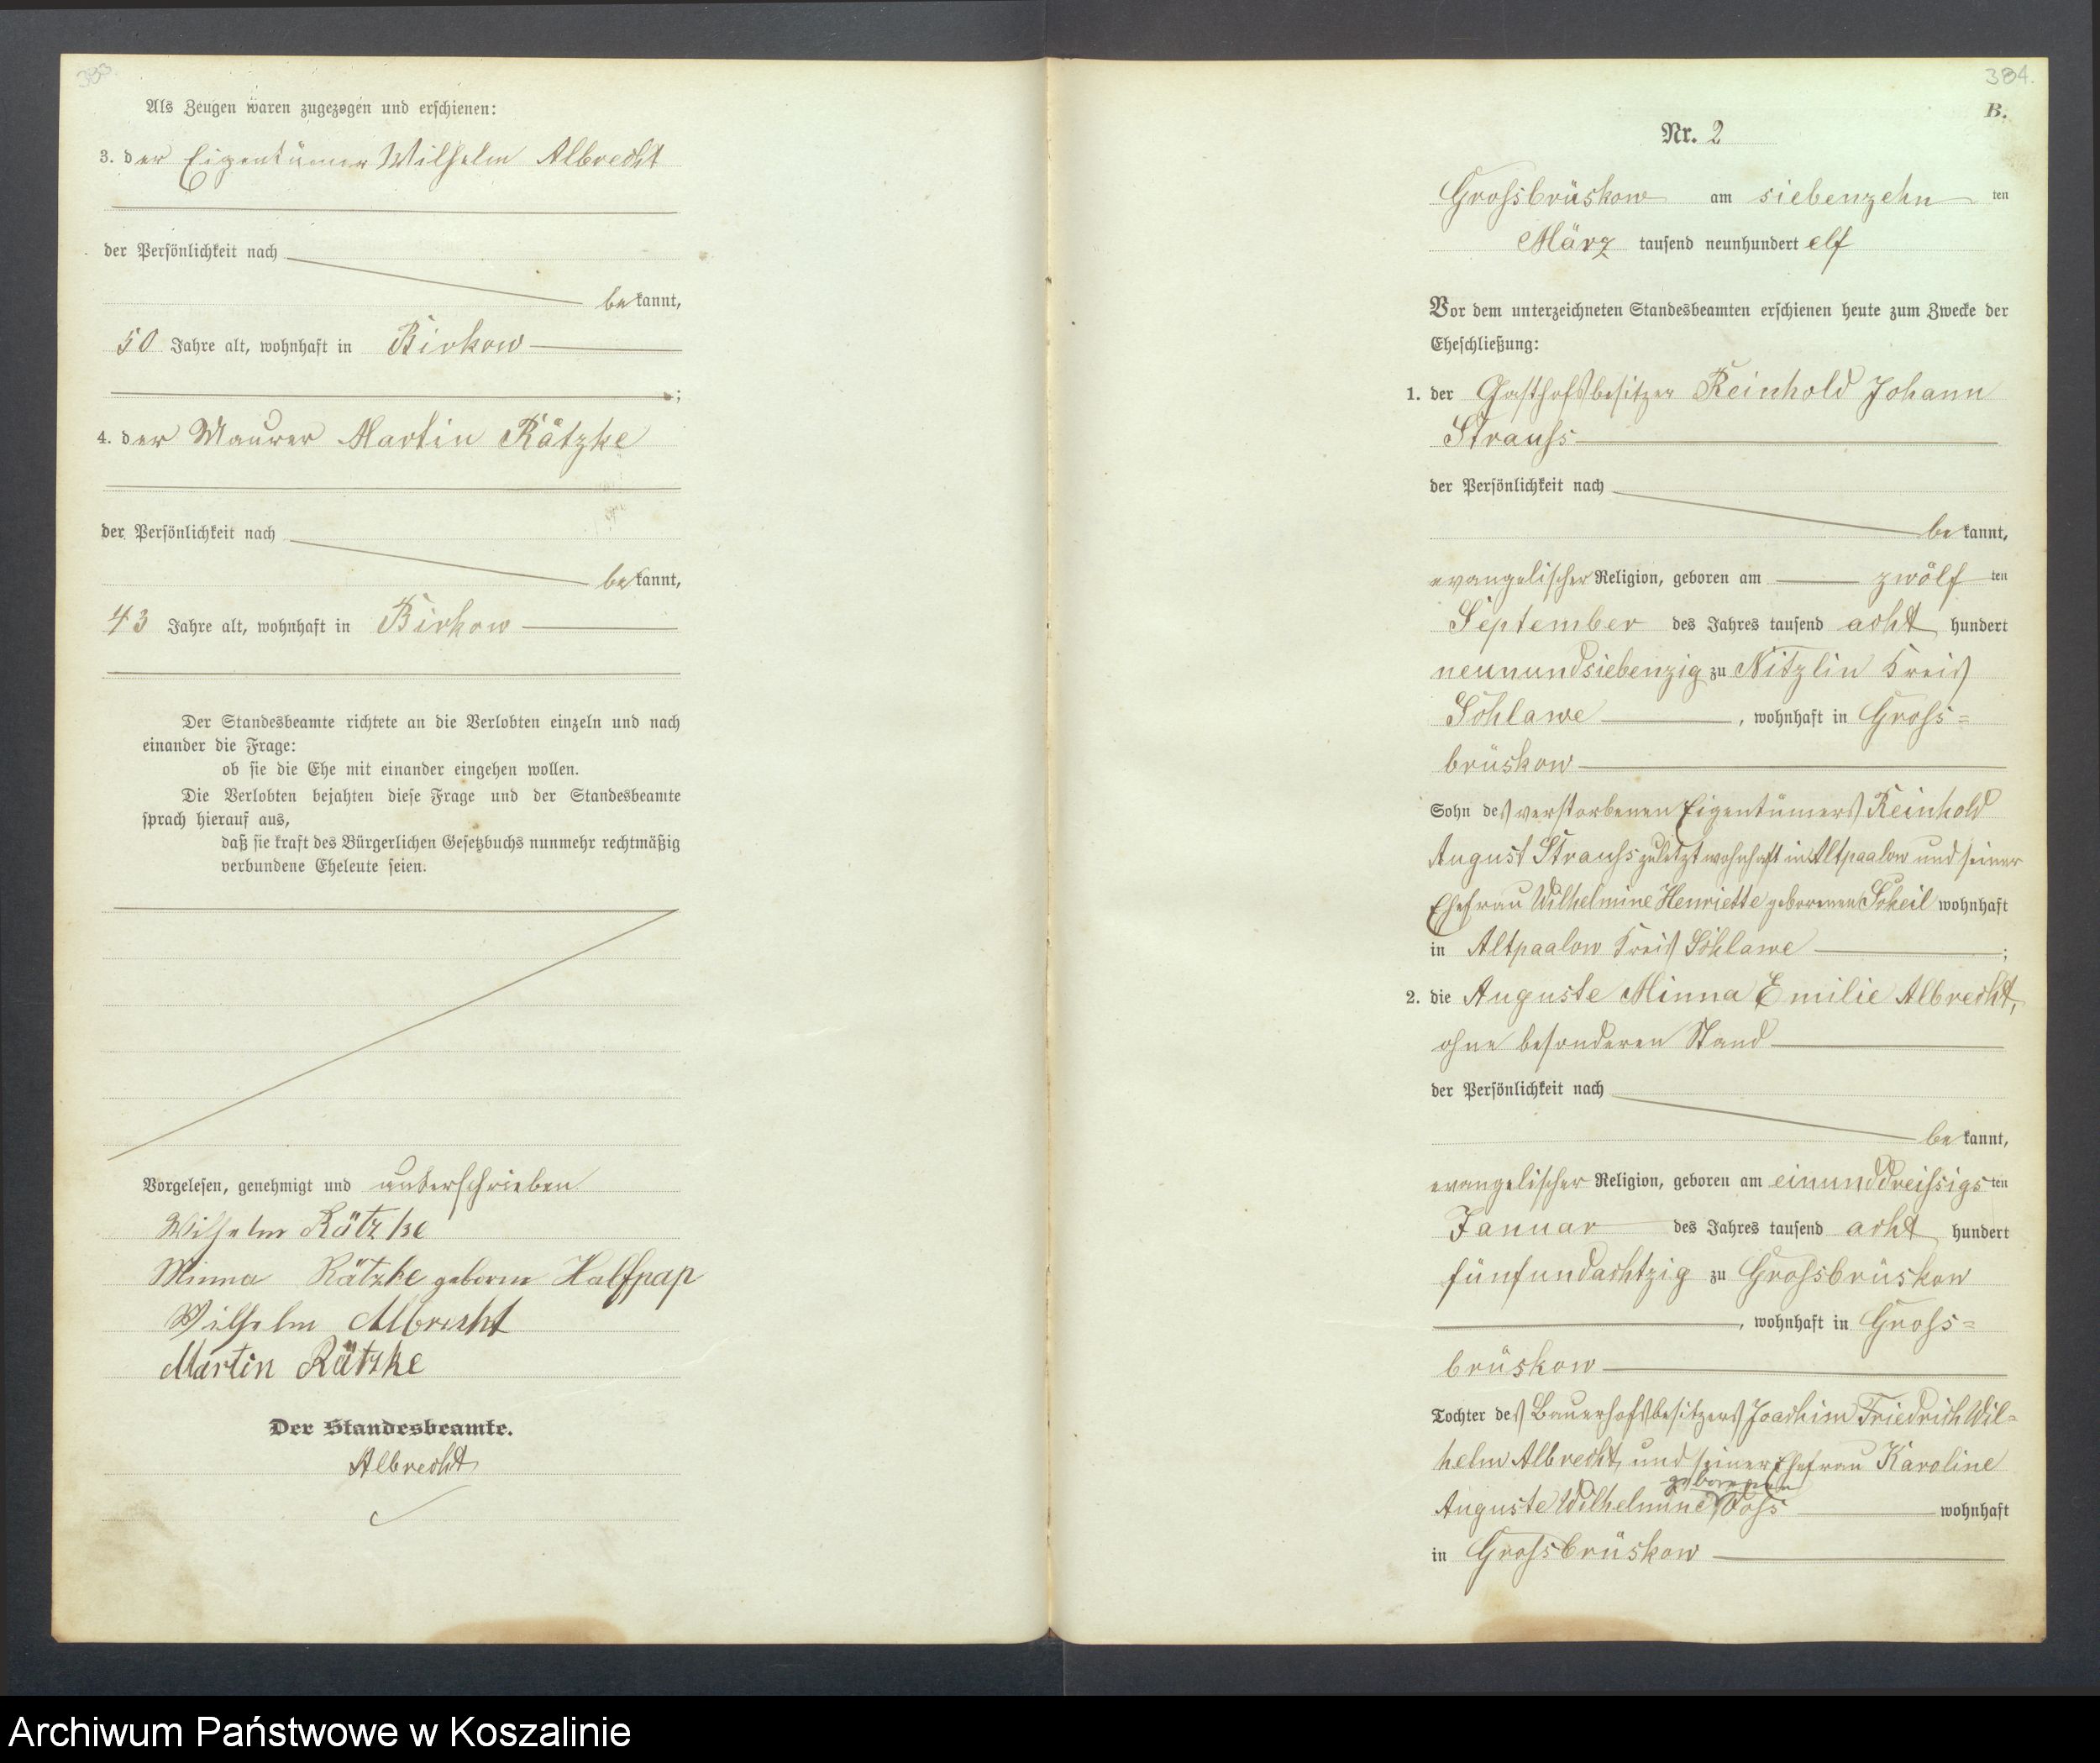 383.
Als Zeugen waren zugezogen und erschienen:
3. der Eigentümer Wilhelm Albrecht
der Persönlichkeit nach
bekannt,
50 Jahre alt, wohnhaft in Birkow
;
4. der Maurer Martin Rätzke
der Persönlichkeit nach
bekannt,
43 Jahre alt, wohnhaft in Birkow
Der Standesbeamte richtete an die Verlobten einzeln und nach
einander die Frage:
ob sie die Ehe mit einander eingehen wollen.
Die Verlobten bejahten diese Frage und der Standesbeamte
sprach hierauf aus,
daß sie kraft des Bürgerlichen Gesetzbuchs nunmehr rechtmäßig
verbundene Eheleute seien.
Vorgelesen, genehmigt und unterschrieben
Wilhelm Rätzke
Minna Rätzke geborne Halfpap
Wilhelm Albrecht
Martin Rätzke
Der Standesbeamte.
Albrecht
384.
B.
Nr. 2
Grossbrüskow am siebenzehn ten
März tausend neunhundert elf
Vor dem unterzeichneten Standesbeamten erschienen heute zum Zwecke der
Eheschließung:
1. der Gasthofsbesitzer Reinhold Johann
Strauss
der Persönlichkeit nach
bekannt,
evangelischer Religion, geboren am zwölf ten
September des Jahres tausend acht hundert
neunundsiebenzig zu Nitzlin Kreis
Schlawe, wohnhaft in Gross=
brüskow
Sohn des verstorbenen Eigentümers Reinhold
August Strauss zuletzt wohnhaft in Altpaalow und seiner
Ehefrau Wilhelmine Henriette geborenen Scheil wohnhaft
in Altpaalow Kreis Schlawe ;
2. die Auguste Minna Emilie Albrecht,
ohne besonderen Stand
der Persönlichkeit nach
bekannt,
evangelischer Religion, geboren am einunddreissigs ten
Januar des Jahres tausend acht hundert
fünfundachtzig zu Grossbrüskow
, wohnhaft in Gross=
brüskow
Tochter des Bauerhofsbesitzers Joachim Friedrich Wil=
helm Albrecht, und seiner Ehefrau Karoline
Auguste Wilhelmine geborenen Voss wohnhaft
in Grossbrüskow
Archiwum Państwowe w Koszalinie